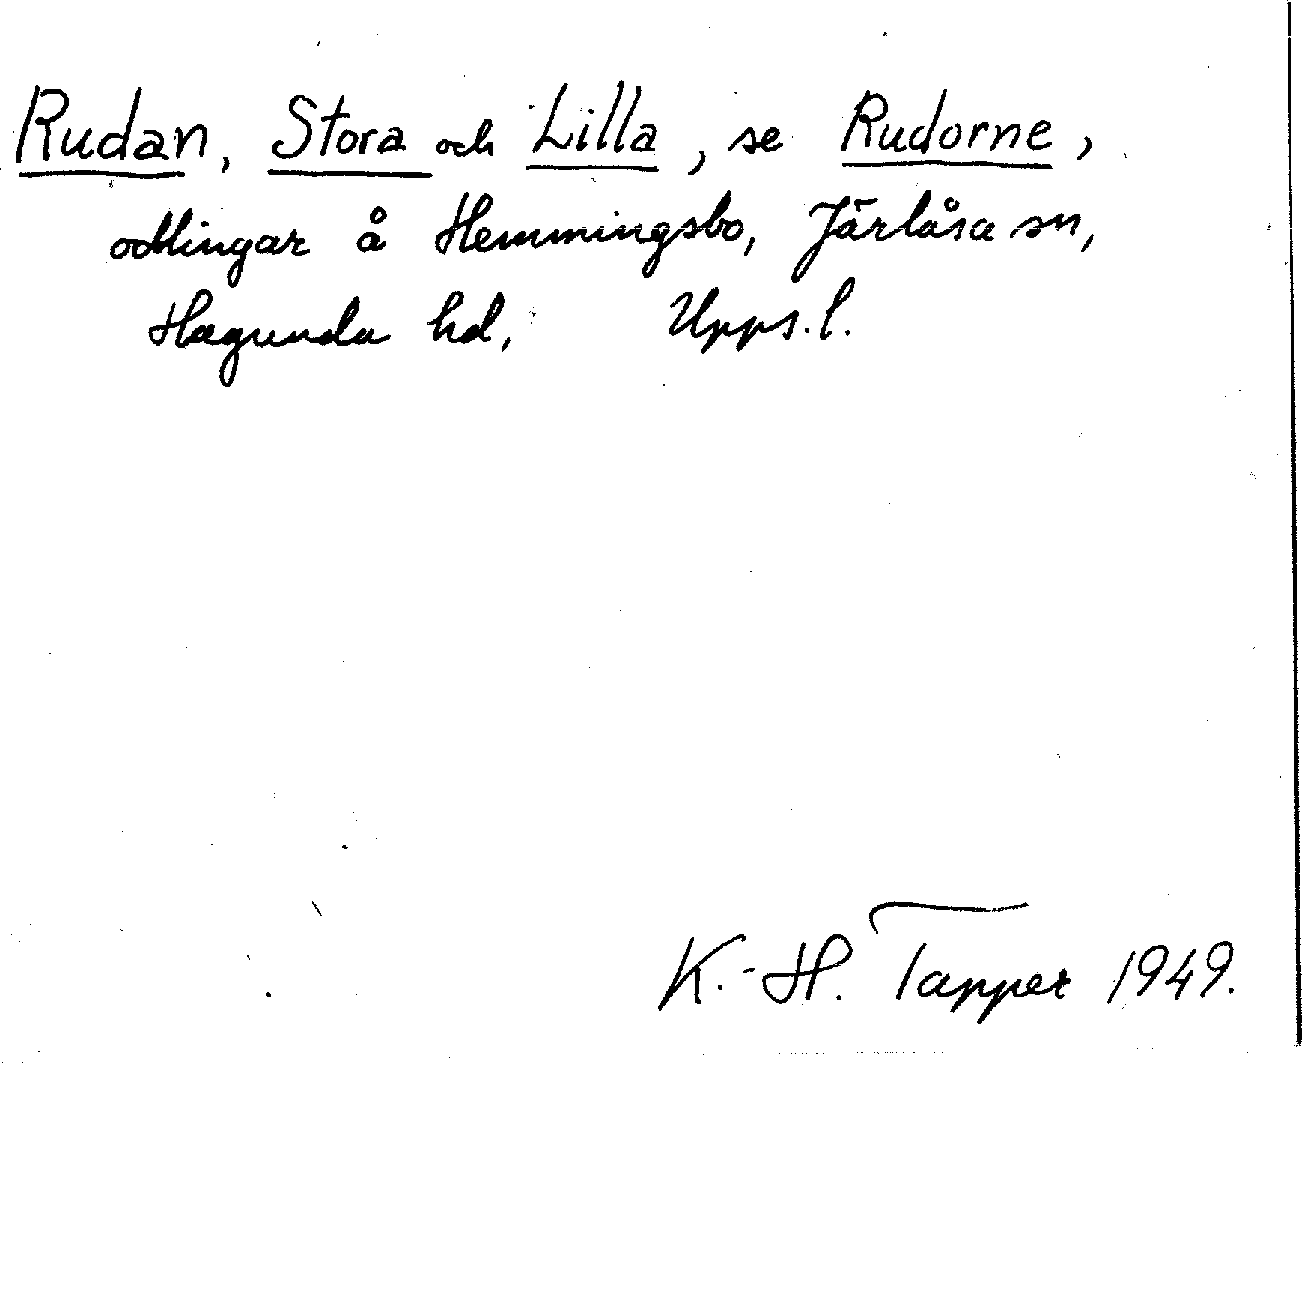 Rudan, Stora och Lilla, se Rudorne,
odlingar å Hemmingsbo, Järlåsa sn,
Hagunda hd, Upps.l.
K.-H. Tapper 1949.